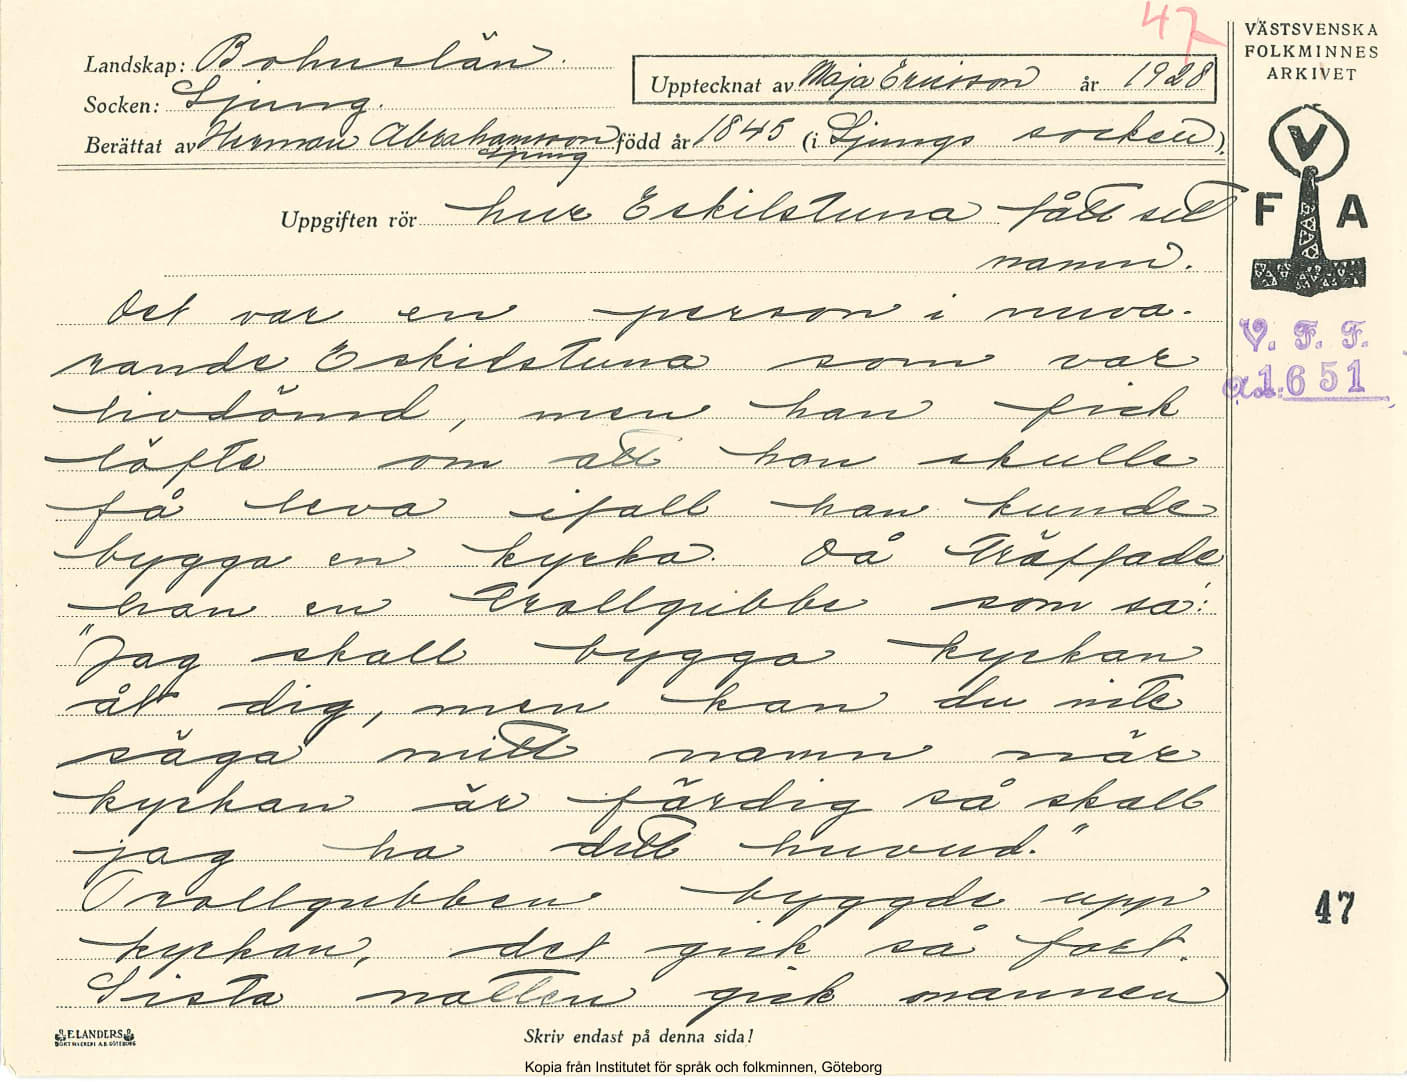 47
VÄSTSVENSKA
FOLKMINNES
ARKIVET
Landskap: Bohuslän.
Upptecknat av Maja Ericsson år 1928
Socken: Ljung.
Berättat av Herman Abrahamsson född år 1845 (i Ljungs socken).
Ljung
Uppgiften rör hur Eskilstuna fått sitt
namn.
V
F A
Det var en person i nuva-
rande Eskilstuna som var
livdömd, men han fick
löfte om att han skulle
få leva ifall han kunde
bygga en kyrka. Då träffade
han en trollgubbe som sa:
"Jag skall bygga kyrkan
åt dig, men kan du inte
säga mitt namn när
kyrkan är färdig så skall
jag ha ditt huvud."
Trollgubben byggde upp
kyrkan, det gick så fort.
Sista natten gick mannen
V. F. F.
acc: 1651
47
ELANDERS
BOKTRYCKERI A.B. GÖTEBORG
Skriv endast på denna sida!
Kopia från Institutet för språk och folkminnen, Göteborg